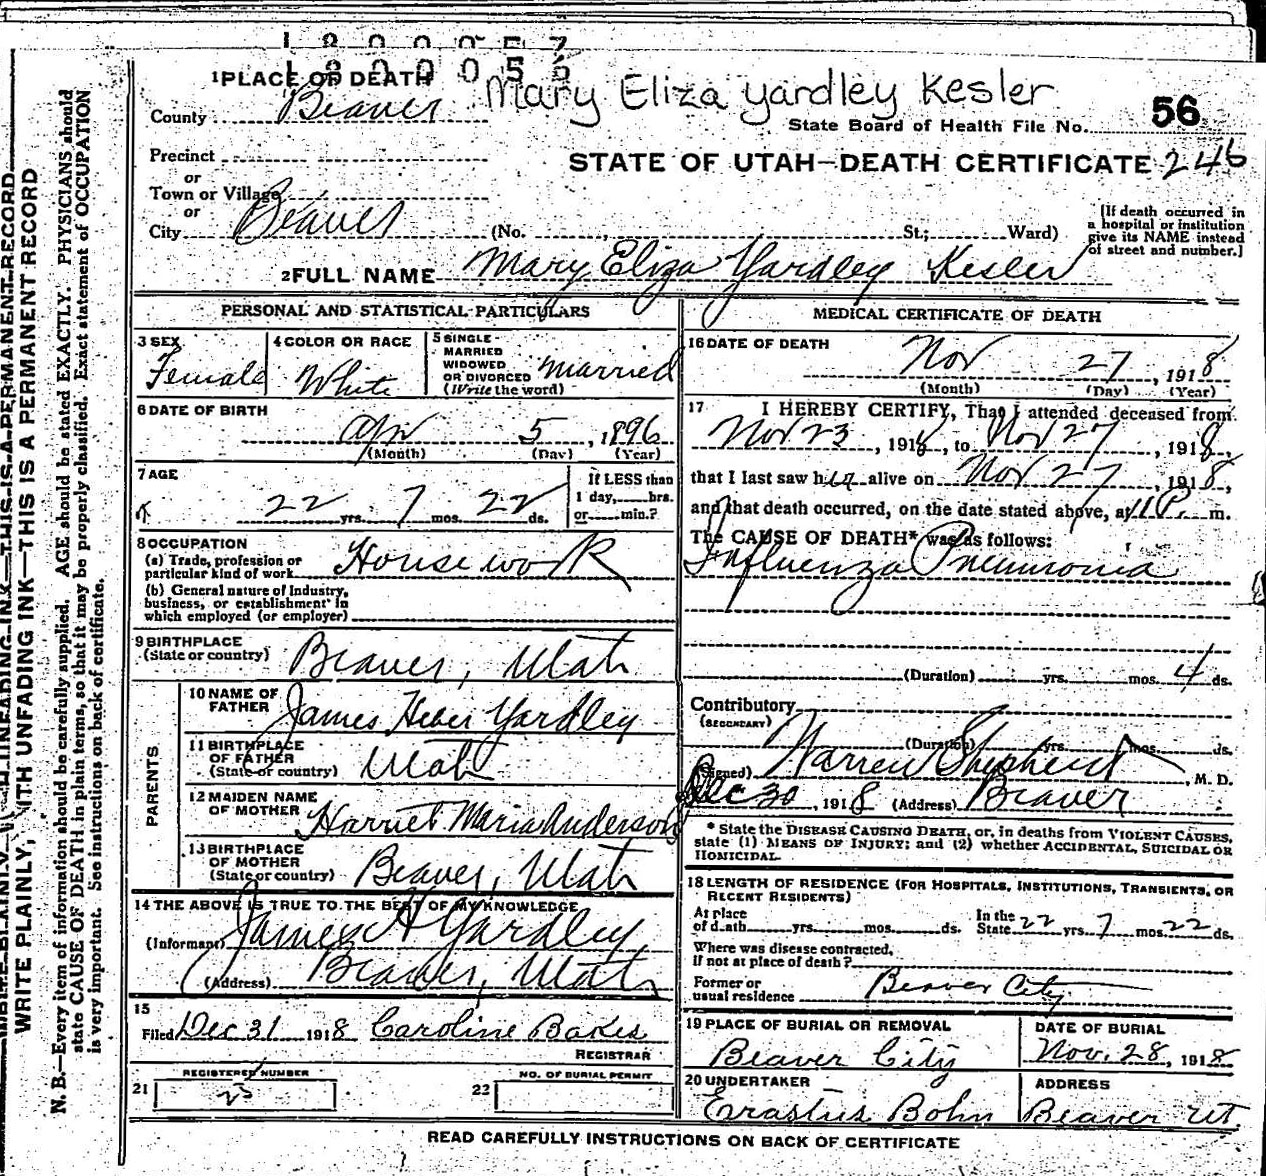 1 PLACE OF DEATH
Mary Eliza Yardley Kesler
County Beaver
State Board of Health File No. 56
Precinct
STATE OF UTAH—DEATH CERTIFICATE 246
or
Town or Village
or
City Beaver (No. , St.; Ward)
[If death occurred in
a hospital or institution
give its NAME instead
of street and number.]
2 FULL NAME Mary Eliza Yardley Kesler
PERSONAL AND STATISTICAL PARTICULARS
3 SEX
Female
4 COLOR OR RACE
White
5 SINGLE
MARRIED
WIDOWED
OR DIVORCED
(Write the word)
Married
6 DATE OF BIRTH
Apr 5, 1896
(Month) (Day) (Year)
7 AGE
22 yrs. 7 mos. 22 ds.
If LESS than
1 day, hrs.
or min.?
8 OCCUPATION
(a) Trade, profession or
particular kind of work Housework
(b) General nature of Industry,
business, or establishment in
which employed (or employer)
9 BIRTHPLACE
(State or country) Beaver, Utah
PARENTS
10 NAME OF
FATHER James Heber Yardley
11 BIRTHPLACE
OF FATHER
(State or country) Utah
12 MAIDEN NAME
OF MOTHER Harriet Maria Anderson
13 BIRTHPLACE
OF MOTHER
(State or country) Beaver, Utah
14 THE ABOVE IS TRUE TO THE BEST OF MY KNOWLEDGE
(Informant) James H Yardley
(Address) Beaver, Utah
15
Filed Dec 31 1918 Caroline Bakes
REGISTRAR
21 REGISTERED NUMBER
22 NO. OF BURIAL PERMIT
MEDICAL CERTIFICATE OF DEATH
16 DATE OF DEATH
Nov 27, 1918
(Month) (Day) (Year)
17 I HEREBY CERTIFY, That I attended deceased from
Nov 23, 1918, to Nov 27, 1918,
that I last saw her alive on Nov 27, 1918,
and that death occurred, on the date stated above, at 11 P. m.
The CAUSE OF DEATH* was as follows:
Influenza Pneumonia
(Duration) yrs. mos. 4 ds.
Contributory
(SECONDARY)
(Duration) yrs. mos. ds.
(Signed) Warren Shepherd M. D.
Dec 30, 1918 (Address) Beaver
* State the DISEASE CAUSING DEATH, or, in deaths from VIOLENT CAUSES,
state (1) MEANS OF INJURY; and (2) whether ACCIDENTAL, SUICIDAL OR
HOMICIDAL.
18 LENGTH OF RESIDENCE (FOR HOSPITALS, INSTITUTIONS, TRANSIENTS, OR
RECENT RESIDENTS)
At place
of death yrs. mos. ds.
In the
State 22 yrs. 7 mos. 22 ds.
Where was disease contracted,
if not at place of death?
Former or
usual residence Beaver City
19 PLACE OF BURIAL OR REMOVAL
Beaver City
DATE OF BURIAL
Nov. 28, 1918
20 UNDERTAKER
Erastus Bohn
ADDRESS
Beaver Ut
READ CAREFULLY INSTRUCTIONS ON BACK OF CERTIFICATE
WRITE PLAINLY, WITH UNFADING INK—THIS IS A PERMANENT RECORD
N. B.—Every item of information should be carefully supplied. AGE should be stated EXACTLY. PHYSICIANS should
state CAUSE OF DEATH in plain terms, so that it may be properly classified. Exact statement of OCCUPATION
is very important. See instructions on back of certificate.